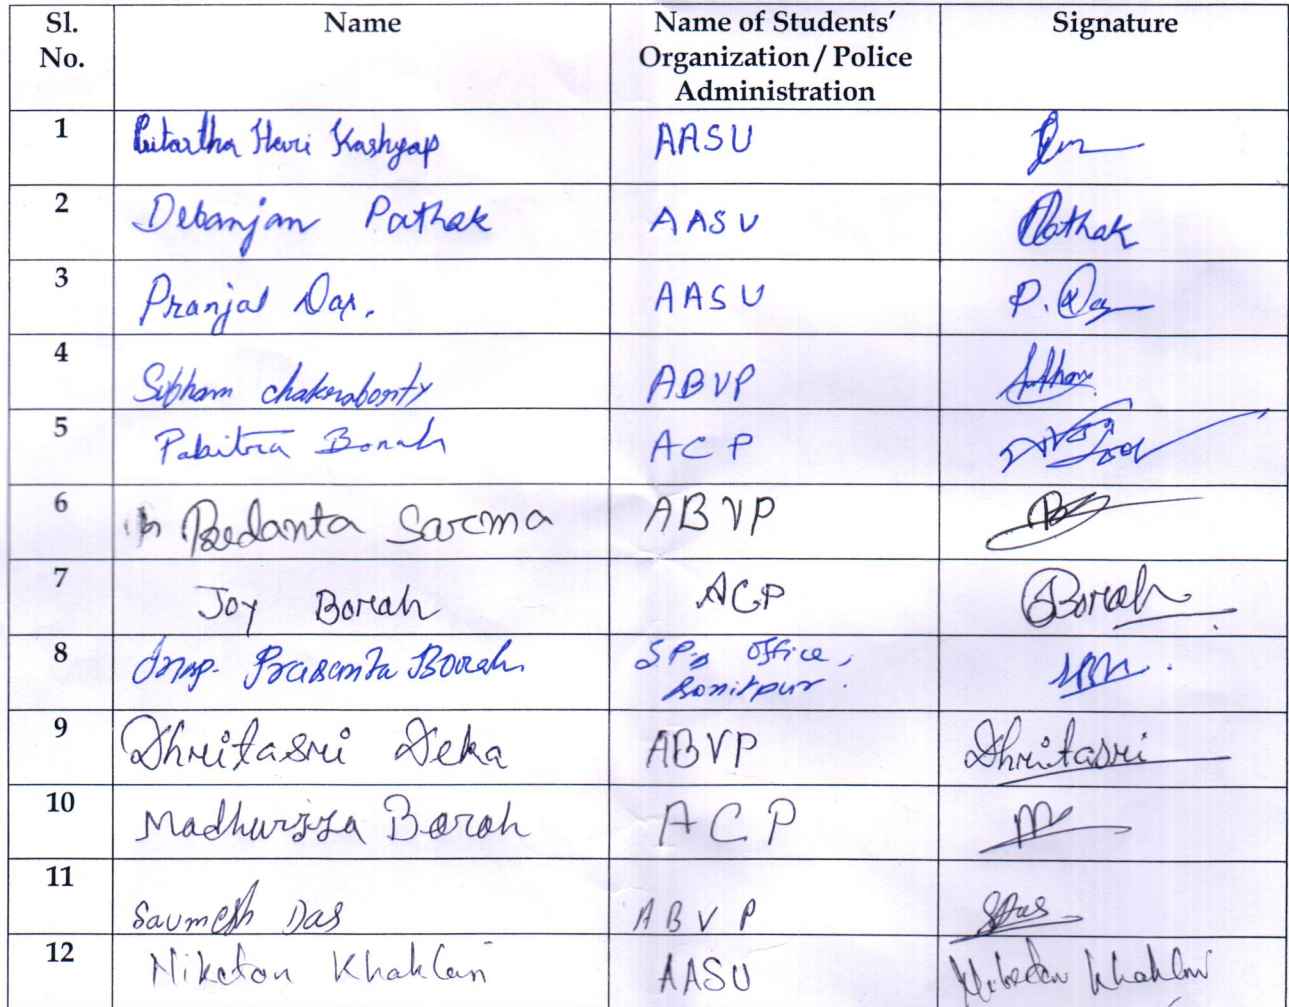 Sl. No. Name Name of Students' Organization / Police Administration Signature
1 Hari Kashyap AASU
2 Debanjan Pathak AASU Pathak
3 Pranjal Das. AASU P. Das
4 Subham chakraborty ABVP
5 Pabitra Borah ACP
6 Bedanta Sarma ABVP
7 Joy Borah ACP Borah
8 Insp. Prasanta Borah SP's office, Sonitpur.
9 Dhritasri Deka ABVP Dhritasri
10 Borah ACP
11 Das ABVP SDas
12 AASU